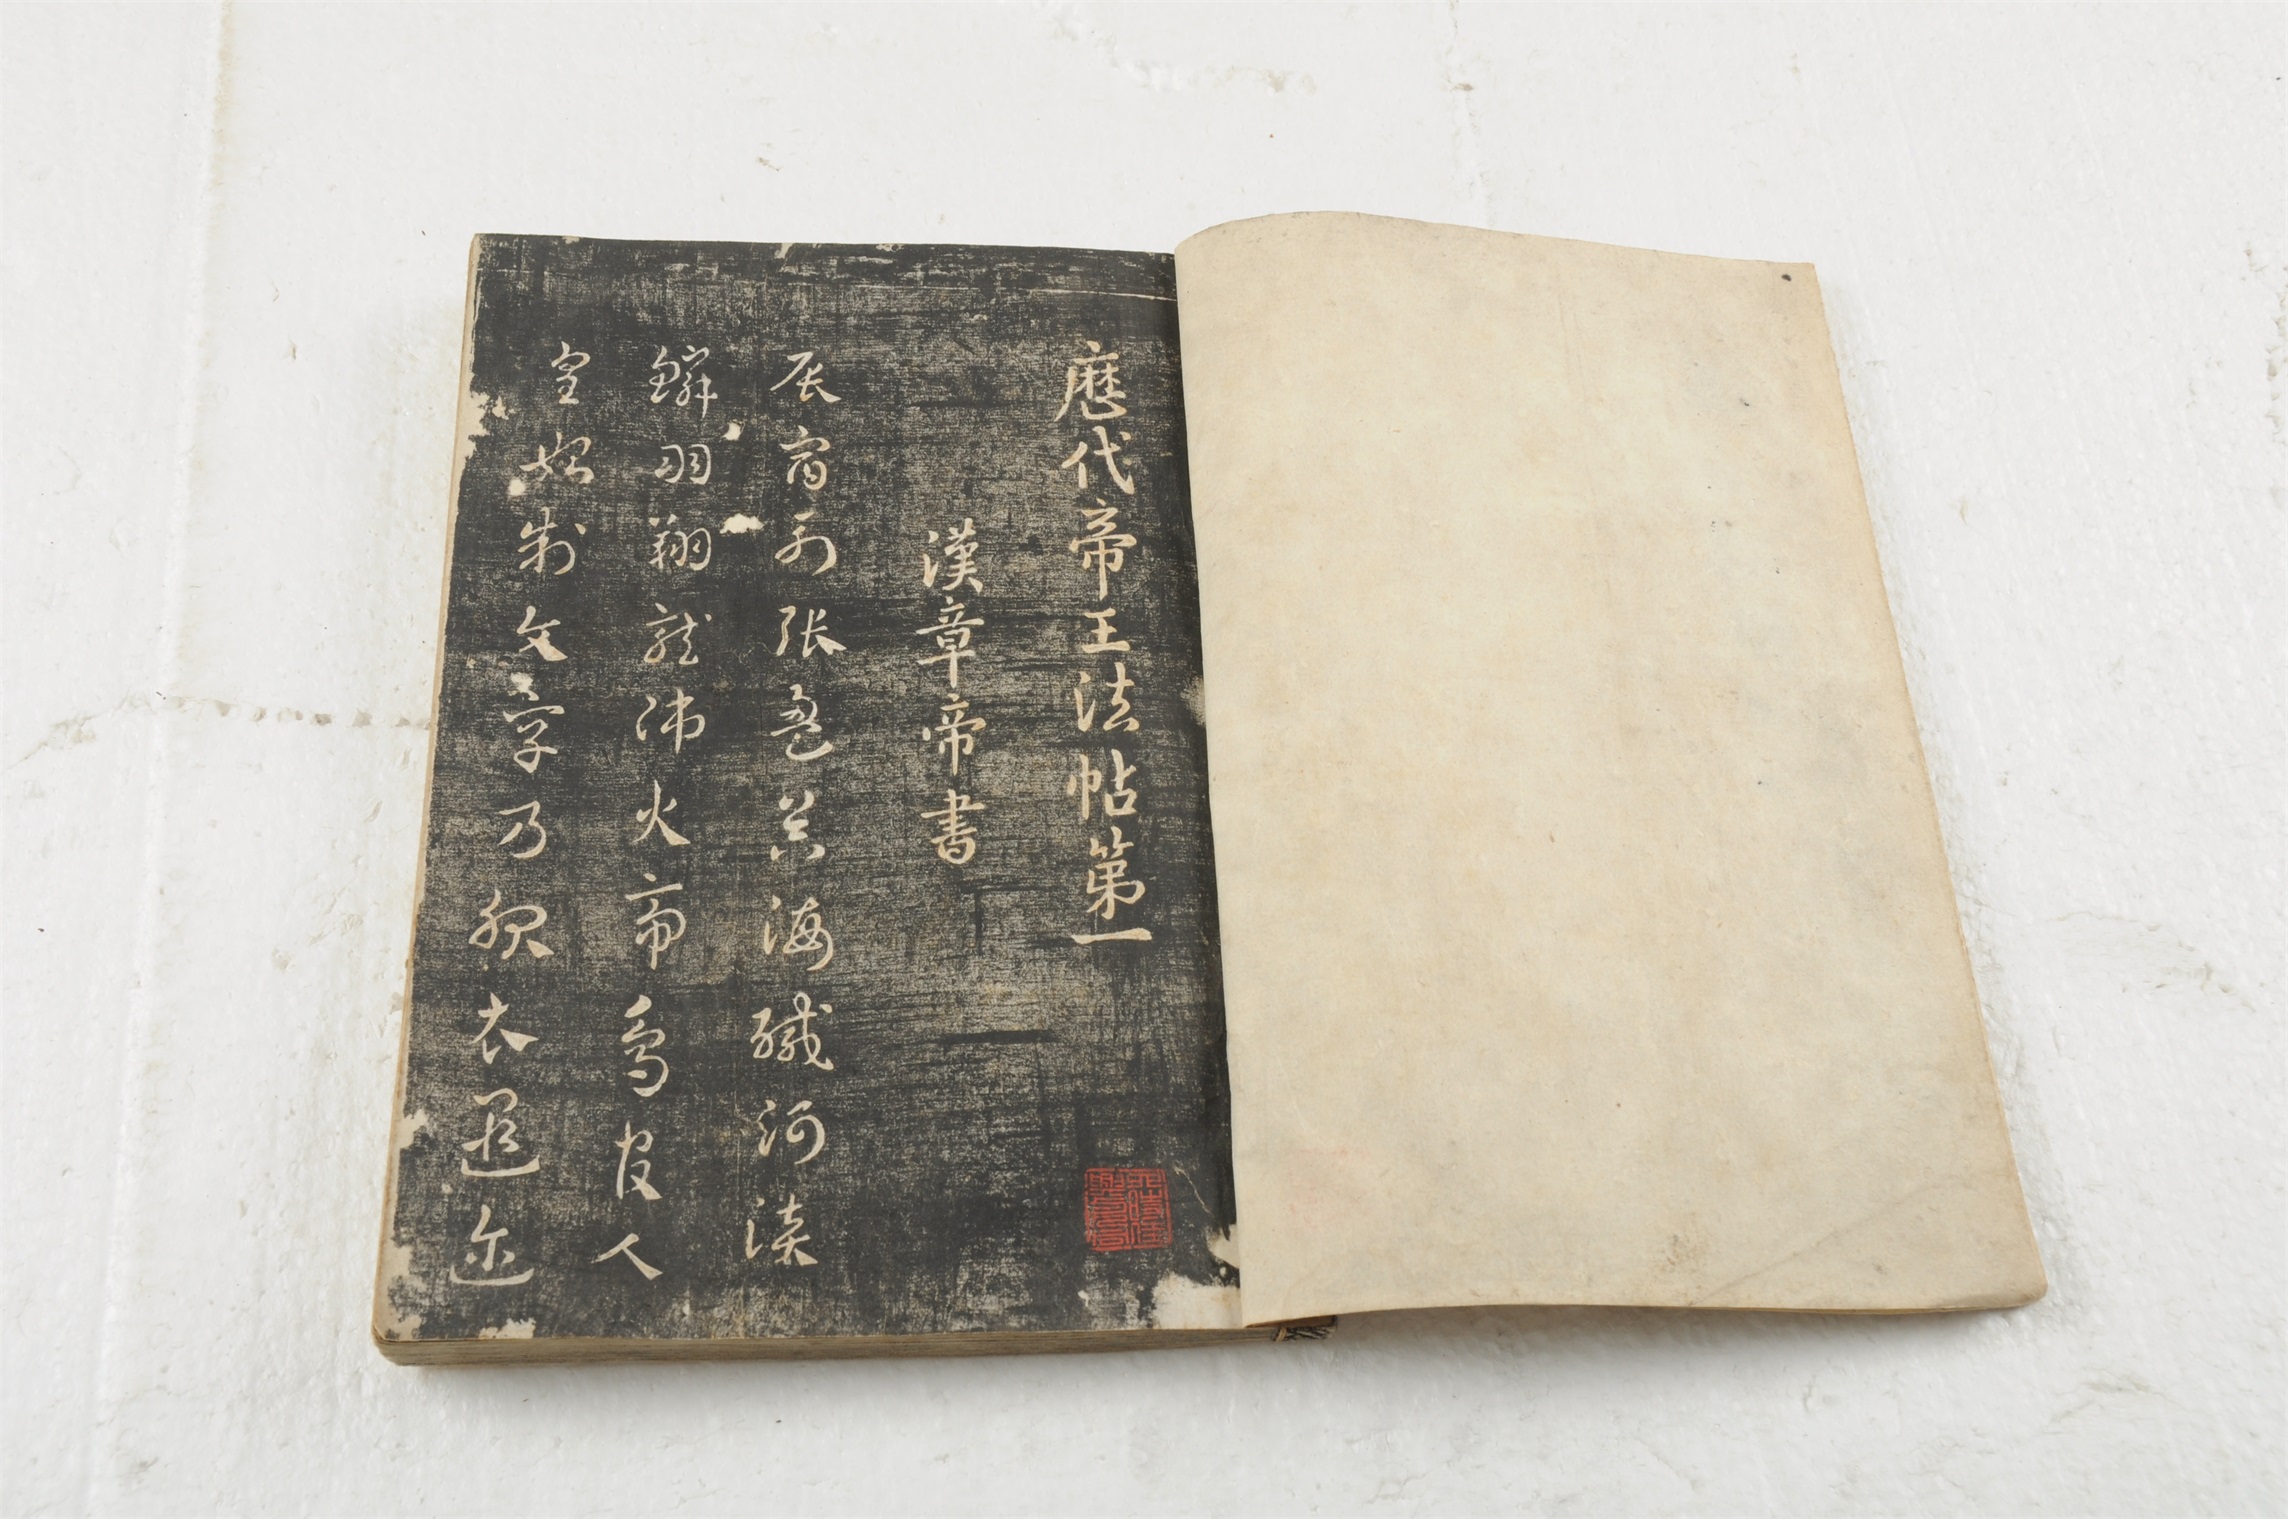 歷代帝王法帖第一
漢章帝書
辰宿列張盈昃海鹹河淡
鱗羽翔龍師火帝鳥官人
皇始制文字乃服衣遐邇